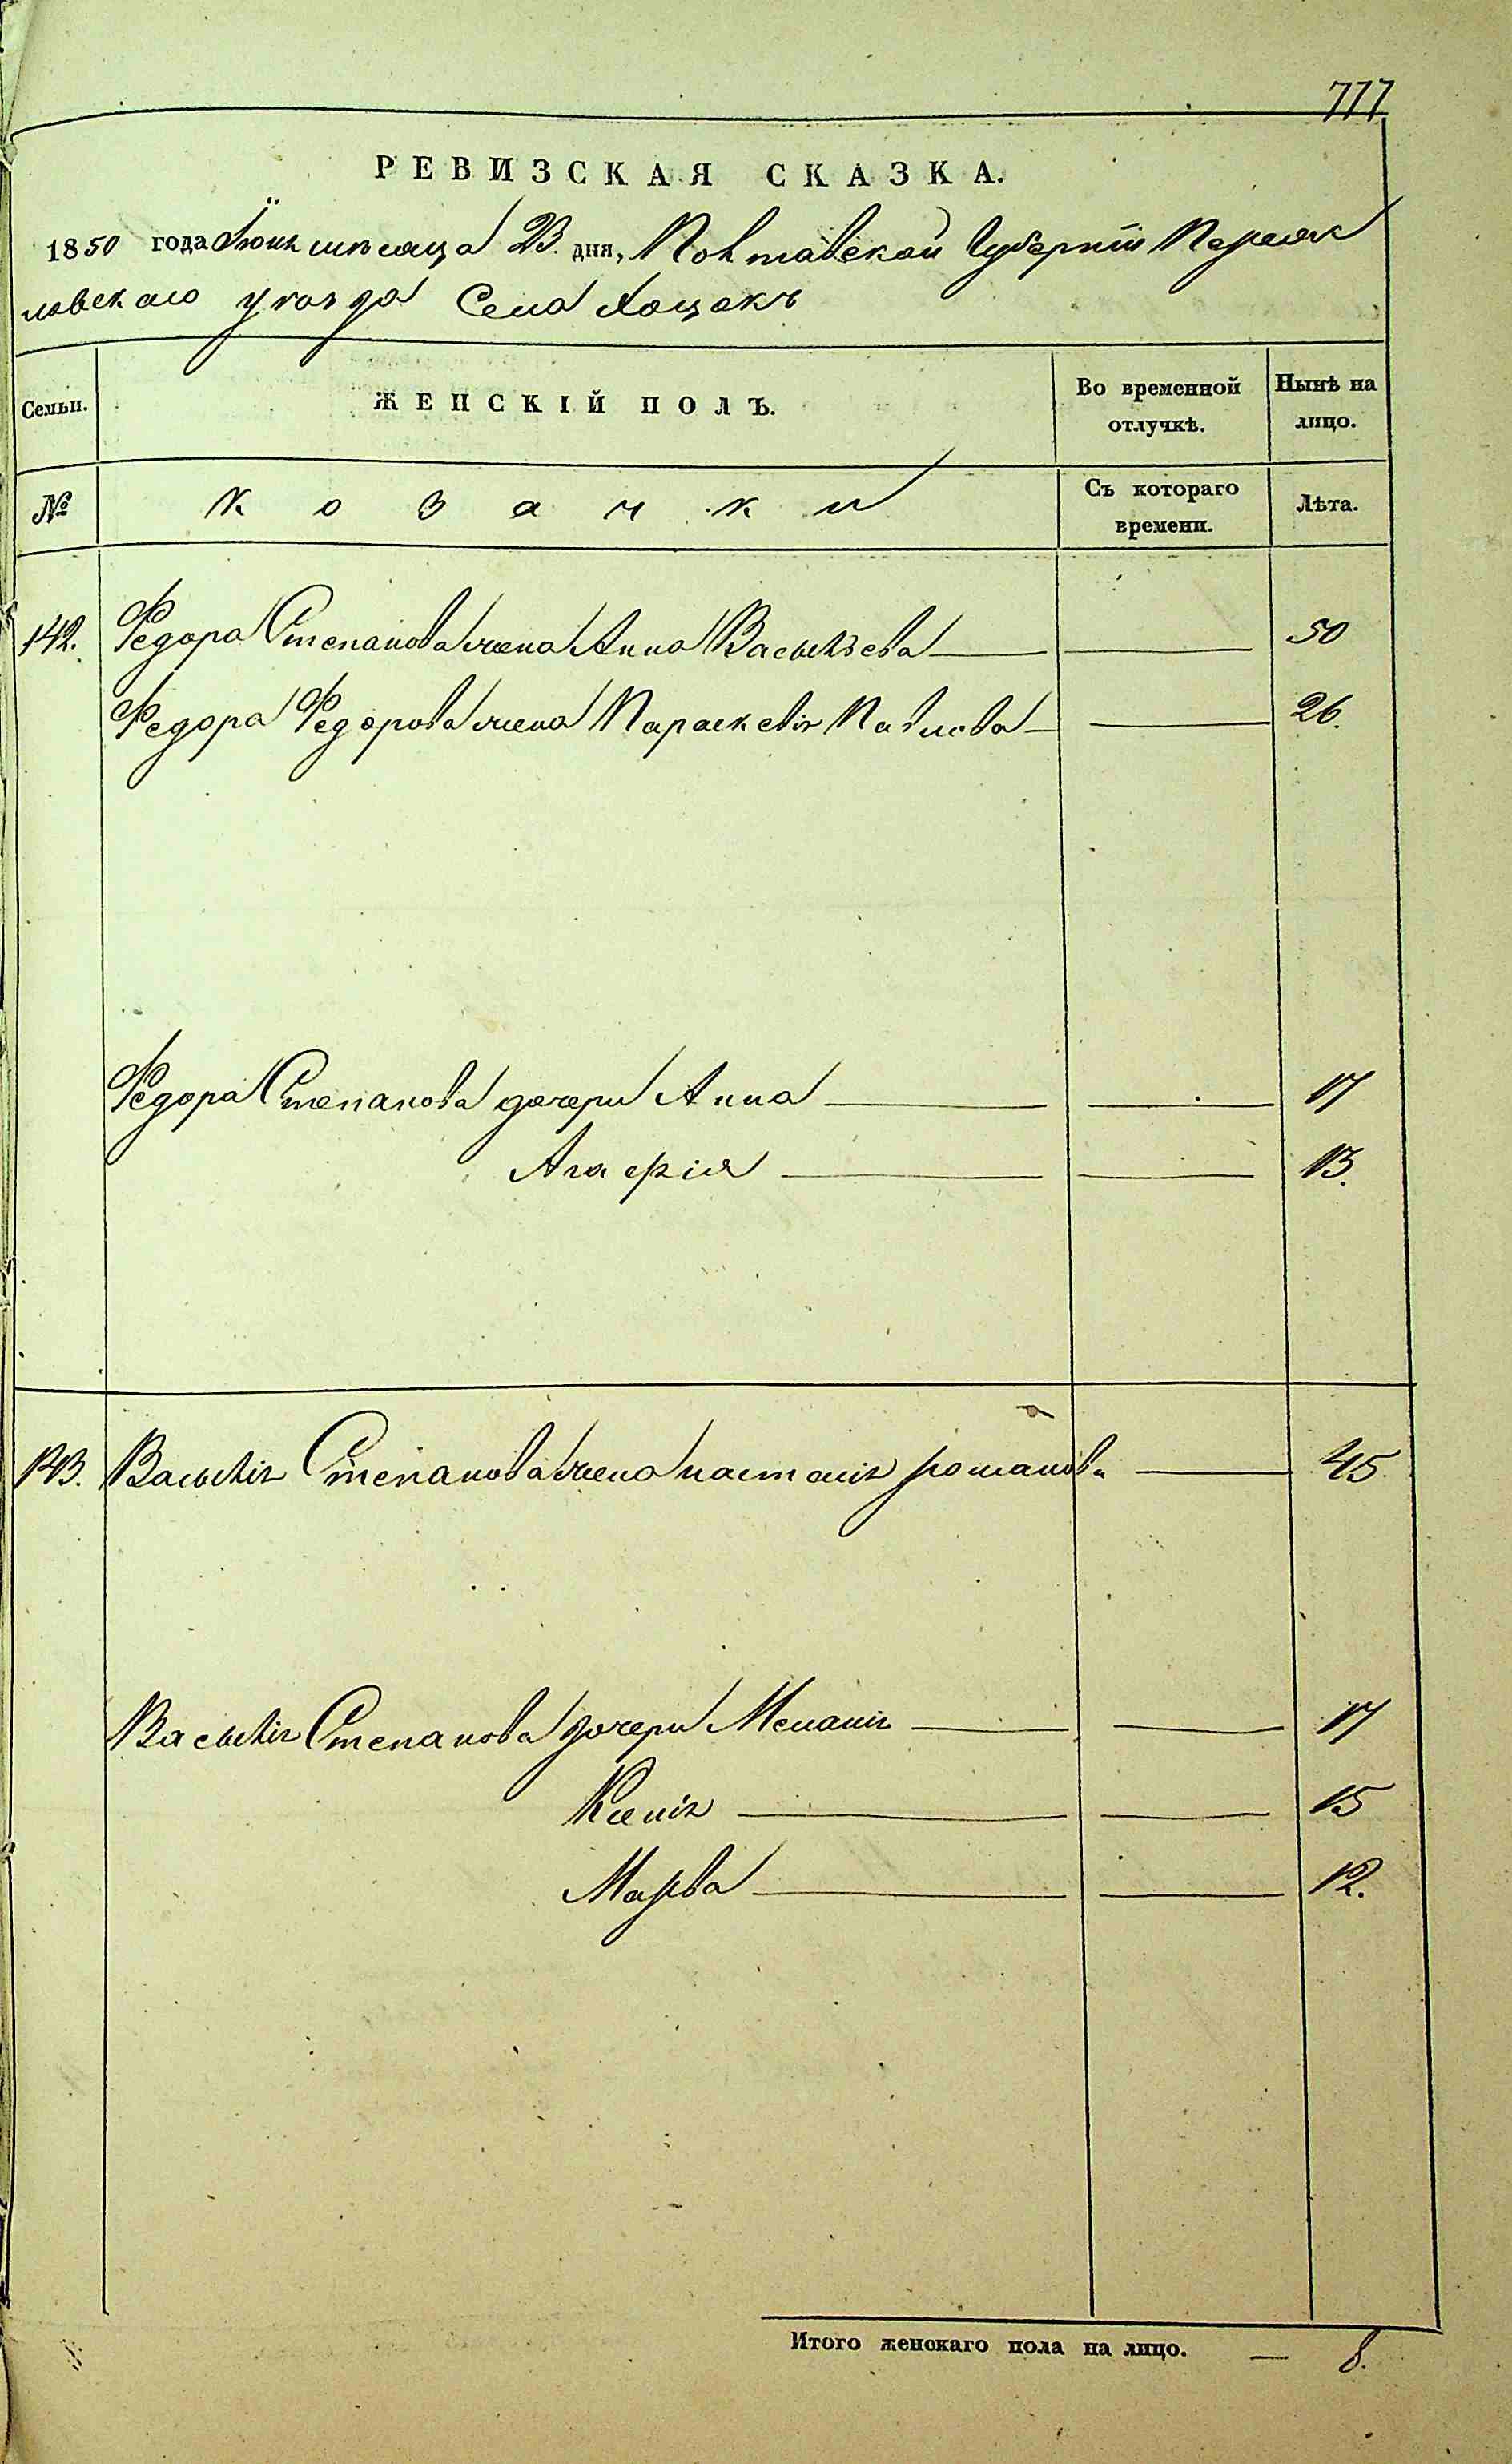 777
РЕВИЗСКАЯ СКАЗКА.
1850 года Іюня мѣсяца 23. дня, Полтавской Губерніи Переяс
ловскаго уезда Села Хоцокъ
Семьи. ЖЕНСКІЙ ПОЛЪ. Во временной отлучкѣ. Нынѣ на лицо.
№ Козачки Съ котораго времени. Лѣта.
142. Федора Степанова жена Анна Васильева 50
Федора Федорова жена Параскевія Павлова 26.
Федора Степанова дочери Анна 17
Агафія 13.
143. Василія Степанова жена настасія романова 45
Василія Степанова дочери Меланія 17
Ксенія 15
Марва 12.
Итого женскаго пола на лицо. — 8.